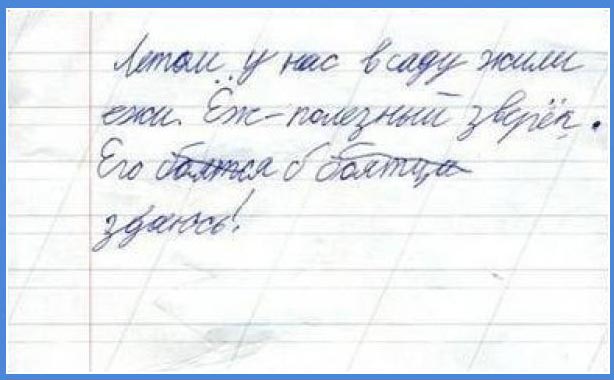 Летом у нас в саду жили
ежи. Ёж - полезный зверёк.
Его боятся б боятца
здаюсь!